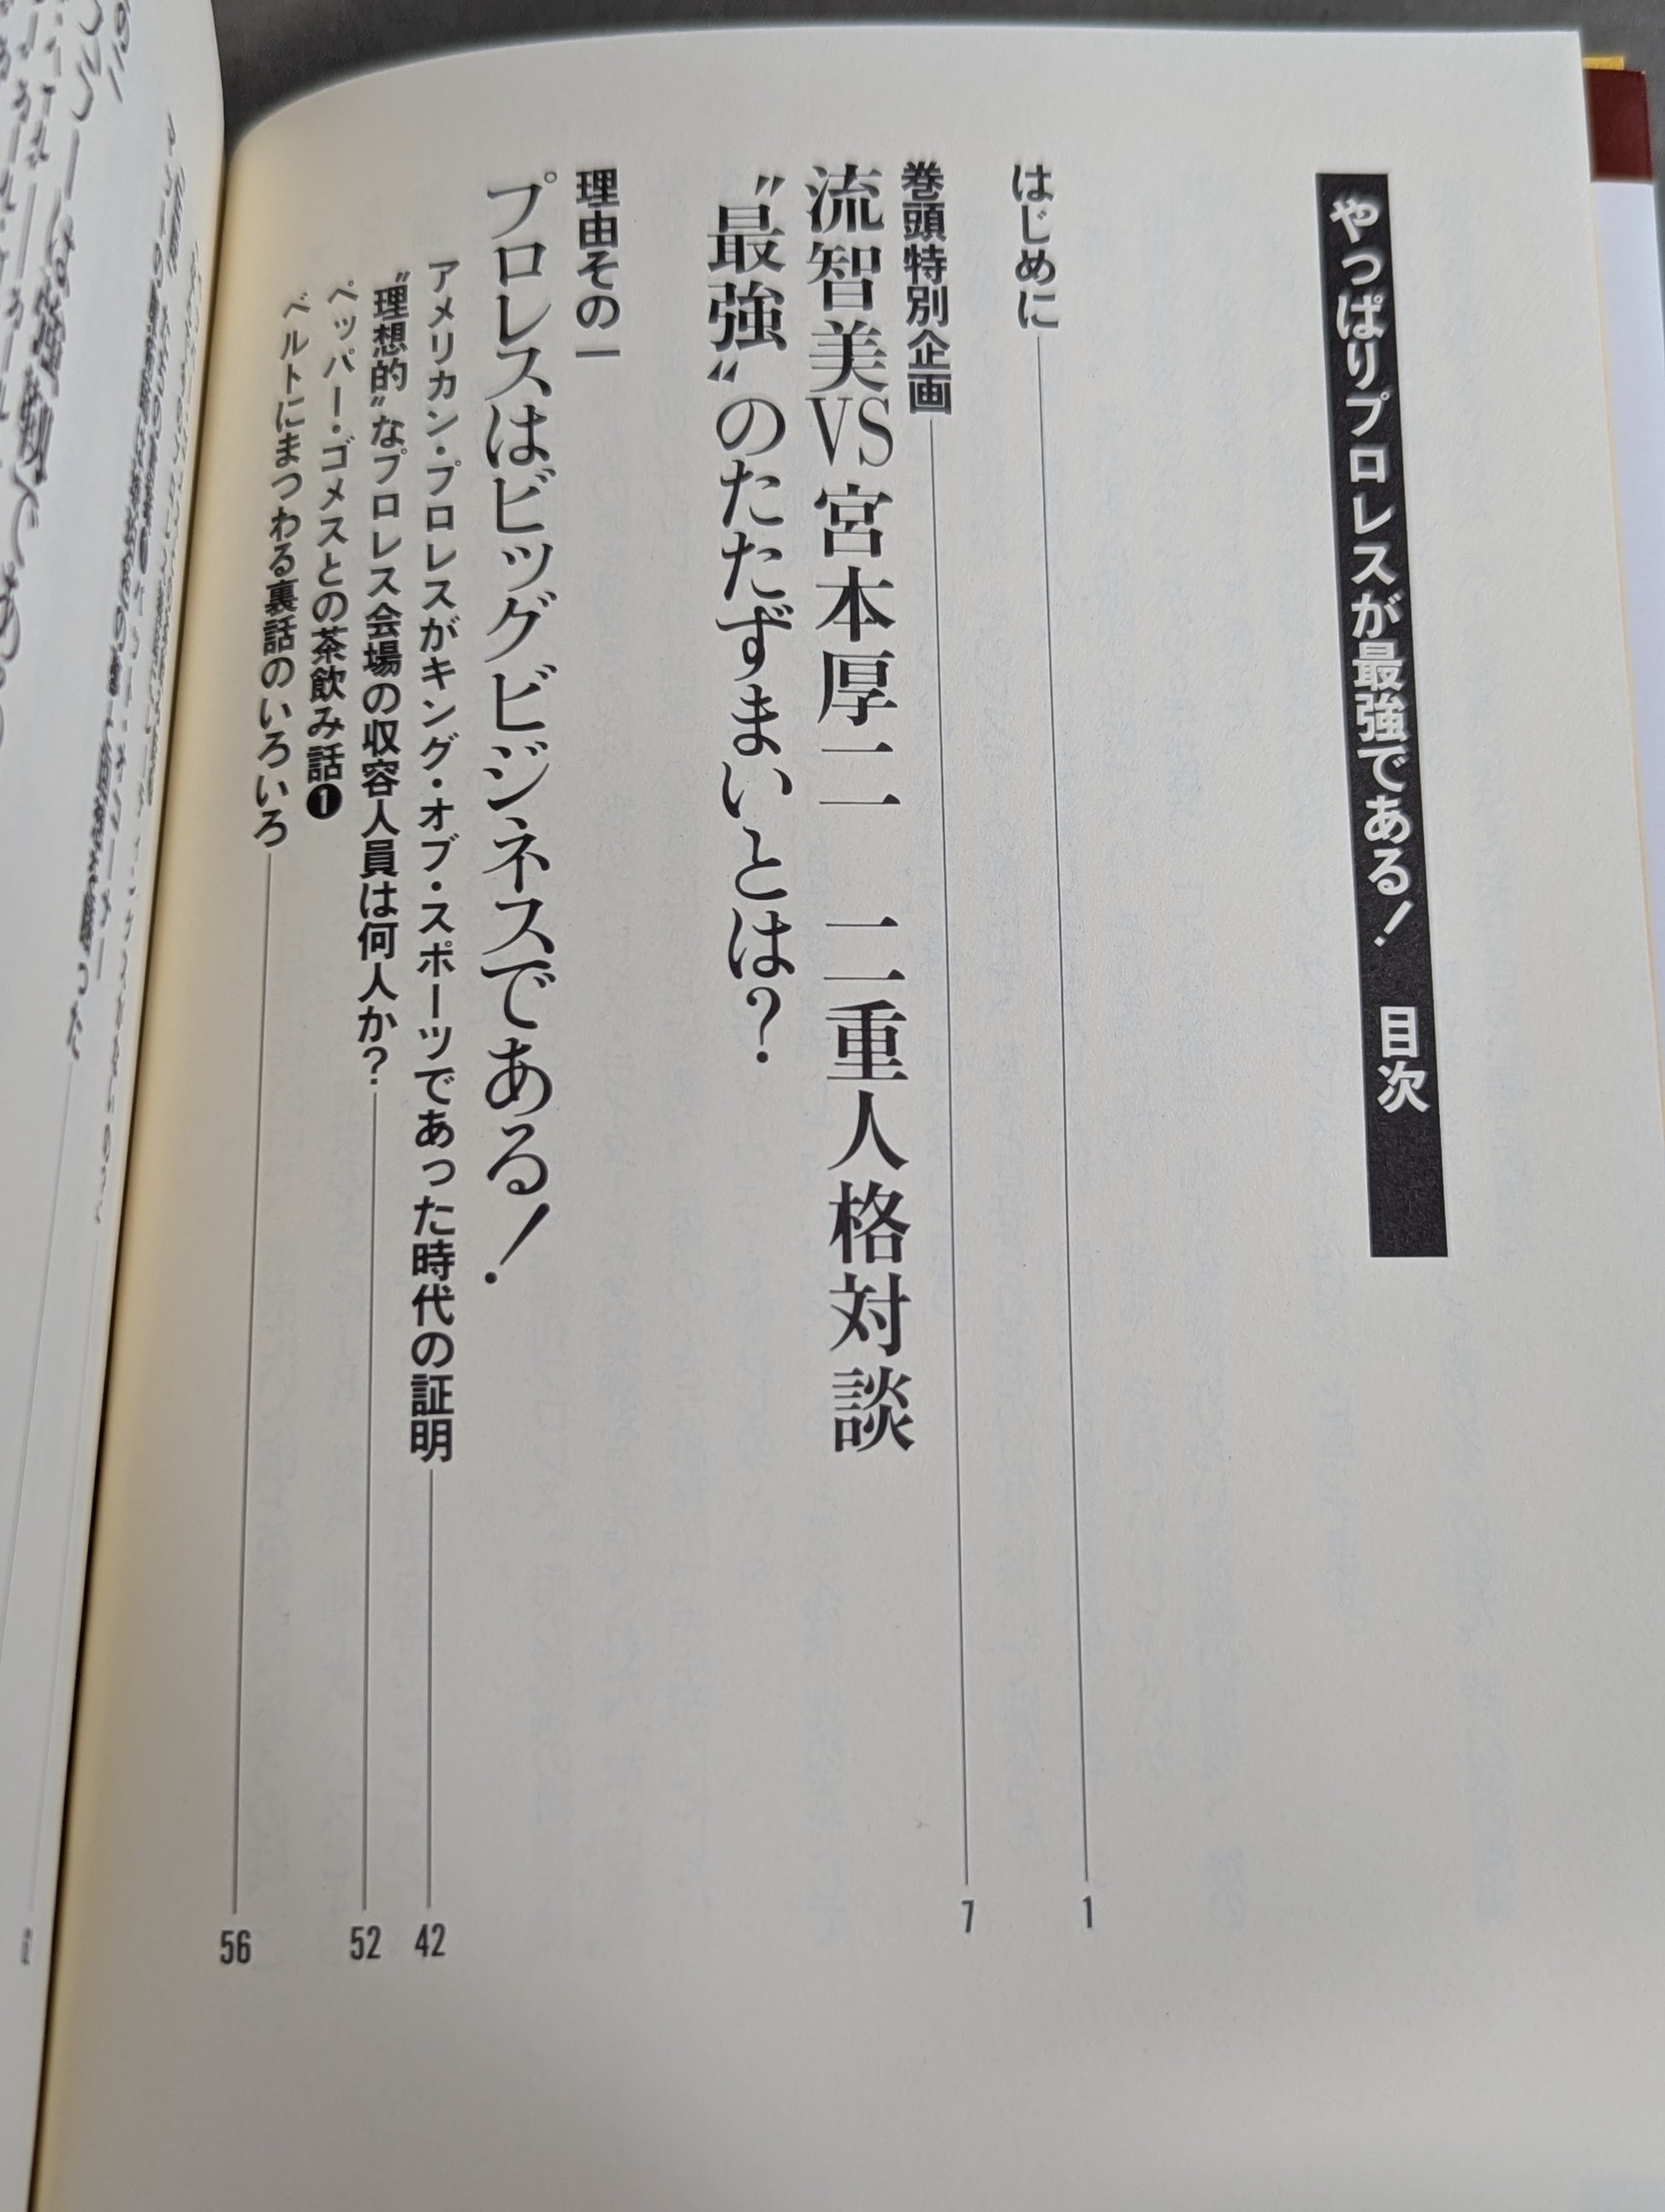 やっぱりプロレスが最強である！　目次
はじめに 1
巻頭特別企画 7
流智美VS宮本厚二　二重人格対談
〝最強〟のたたずまいとは？
理由その一
プロレスはビッグビジネスである！
アメリカン・プロレスがキング・オブ・スポーツであった時代の証明 42
〝理想的〟なプロレス会場の収容人員は何人か？ 52
ペッパー・ゴメスとの茶飲み話❶
ベルトにまつわる裏話のいろいろ 56